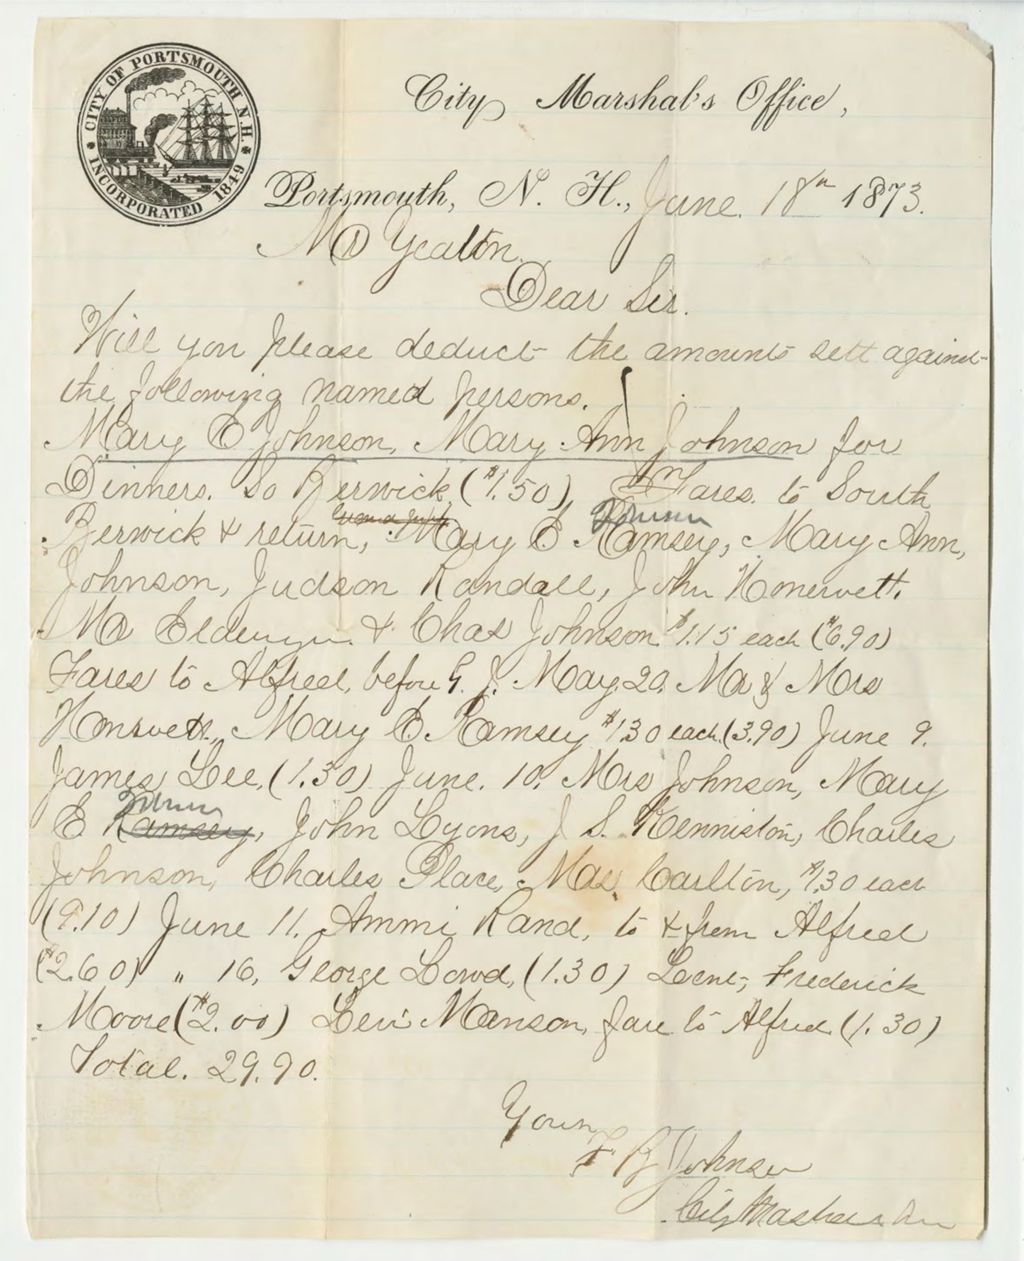 CITY OF PORTSMOUTH N.H.
INCORPORATED 1849
City Marshal's Office,
Portsmouth, N. H., June 18th 1873.
Mr Yeaton.
Dear Sir.
Will you please deduct the amounts sett against
the following named persons.
Mary E Johnson, Mary Ann Johnson for
Dinners. So Berwick, ($1.50), Fares. to South
Berwick & return, Mary E. Johnson Ramsey, Mary Ann,
Johnson, Judson Randall, John
Mr & Chas Johnson $1.15 each (6.90)
Fares to Alfred, before G. J. May 20. Mr & Mrs
Mary E. Ramsey $1.30 each (3.90) June 9.
James Lee, (1.30) June. 10, Mrs Johnson, Mary
E Johnson Ramsey, John Lyons, J S. Kenniston, Charles
Johnson, Charles Place, Mrs. Carlton, $1.30 each
(9.10) June 11. Ammi Rand, to & from Alfred
($2.60) " 16, George Dowd, (1.30) Frederick
Moore ($2.00) Levi Manson, fare to Alfred (1.30)
Total. 29.90.
Yours
F B Johnson
City Marshal